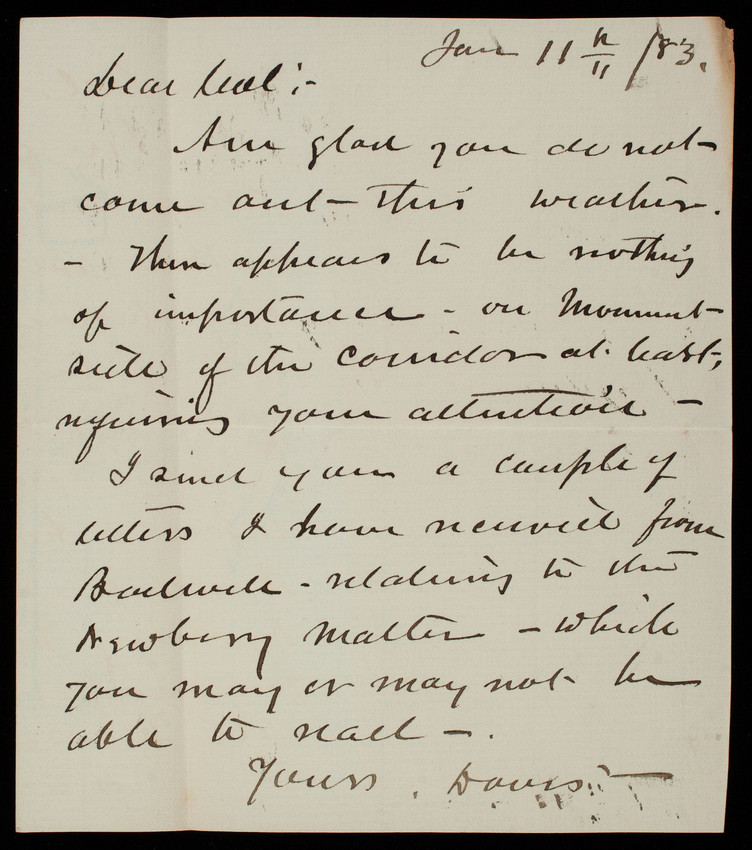 Jan 11th /83.
Dear Col :-
Am glad you do not
come out - this weather.
- There appears to be nothing
of importance - on Monument
side of the corridor at least,
requiring your attention -
I send you a couple of
letters I have received from
- relating to the
Newberry matter - which
you may or may not be
able to read - .
Yours . Davis -